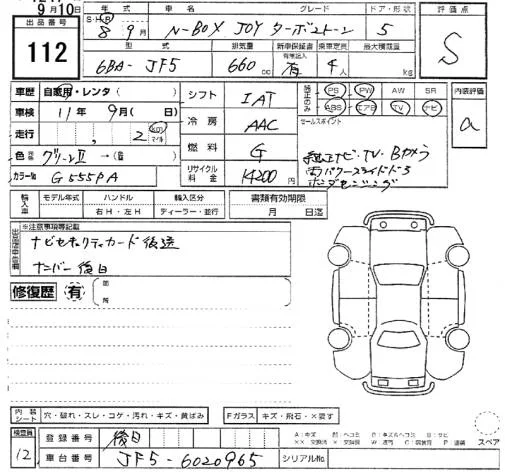 9月10日
出品番号
112
年式 車名 グレード ドア・形状 評価点
S・H・R
8年 9月 N-BOX JOY ターボ 5 S
型式 排気量 新車保証書 乗車定員 最大積載量
6BA-JF5 660cc 有 4人 kg
車歴 自家用・レンタ( )
シフト IAT
PS PW AW SR
ABS エアB TV ナビ
内装評価
a
車検 11年 9月( 日)
冷房 AAC
セールスポイント
走行 , 2 km マイル
燃料 G
純正ナビ・TV・Bカメラ
色 グリーンⅡ →( )
リサイクル料金 14200円
両パワースライドドア
ホンダセンシング
カラーNo G555PA
輸入車 モデル年式 ハンドル 輸入区分 書類有効期限
右H・左H ディーラー・並行 月 日迄
※注意事項等記載
ナビセキュリティカード後送
ナンバー後日
修復歴 有
箇所
内装シート 穴・破れ・スレ・コゲ・汚れ・キズ・黄ばみ
Fガラス キズ・飛石・×要す
スペア
検査員
12
登録番号 後日
車台番号 JF5-6020965 シリアルNo.